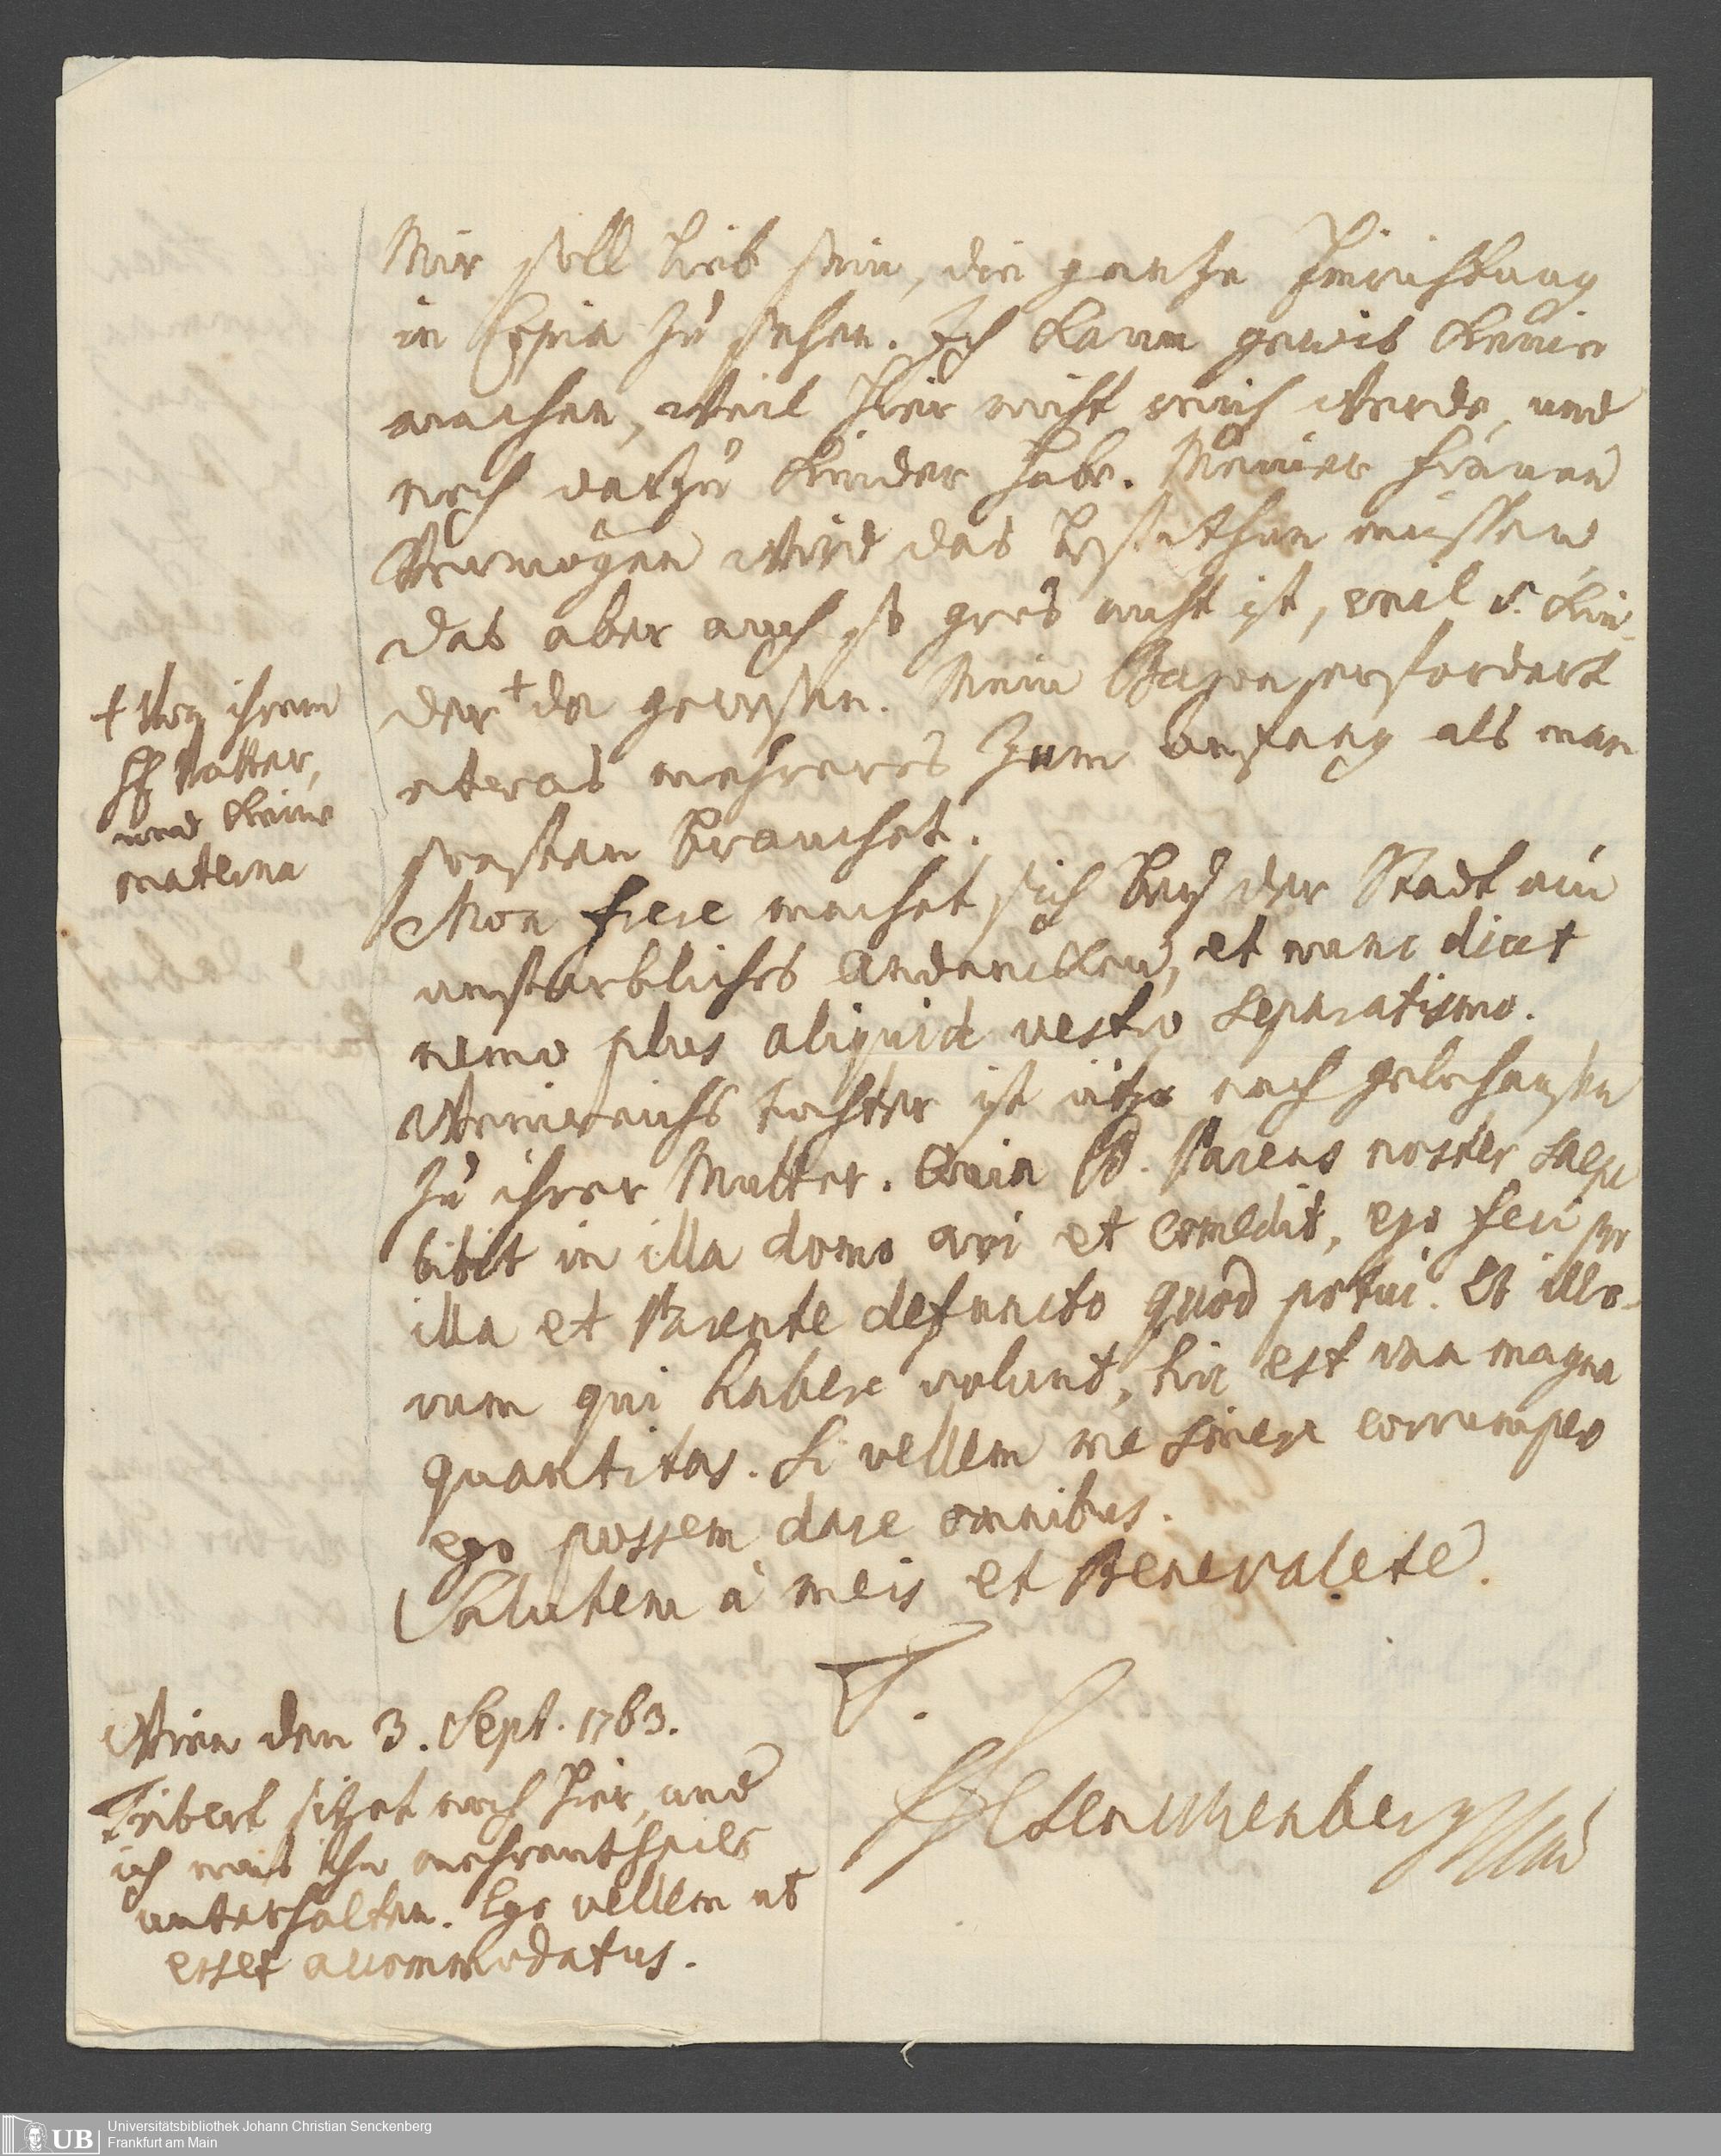 Mir soll lieb sein, die gantze Einrichtung
in Copia zu sehen. Ich kann gewis keine
machen, weil hier nicht reich werde, und
noch darzu Kinder habe. Meiner Frauen
Vermögen wird das Beste thun müssen
das aber auch so gros nicht ist, weil 5. Kin-
der + da gewesen. Mein erfordert
etwas mehreres zum anfang als man
sonsten brauchet.
Mon frere machet sich bey der Stadt ein
unsterbliches Andencken, et nunc dicet
nemo plus aliquid de vestro separatismo.
Weinreichs tochter ist itzo nach gelnhausen
zu ihrer Mutter. Quia B. Parens noster saepe
bibit in illa domo avi et comedit, ego feci pro
illa et Parente defuncto quod potui. Et illo-
rum qui habere volunt, hic est una magna
quantitas. Si vellem me sinere corrumpere
ego possem dare omnibus.
Salutem à meis et Benevalete.
T.
HCSenckenberg
+ Von ihrem
H. Vatter,
und keine
materna
Wien den 3. Sept. 1763.
Fribert sitzet noch hier, und
ich mus ihn mehrentheils
unterhalten. Ego vellem ut
esset accommodatus.
UB
Universitätsbibliothek Johann Christian Senckenberg
Frankfurt am Main